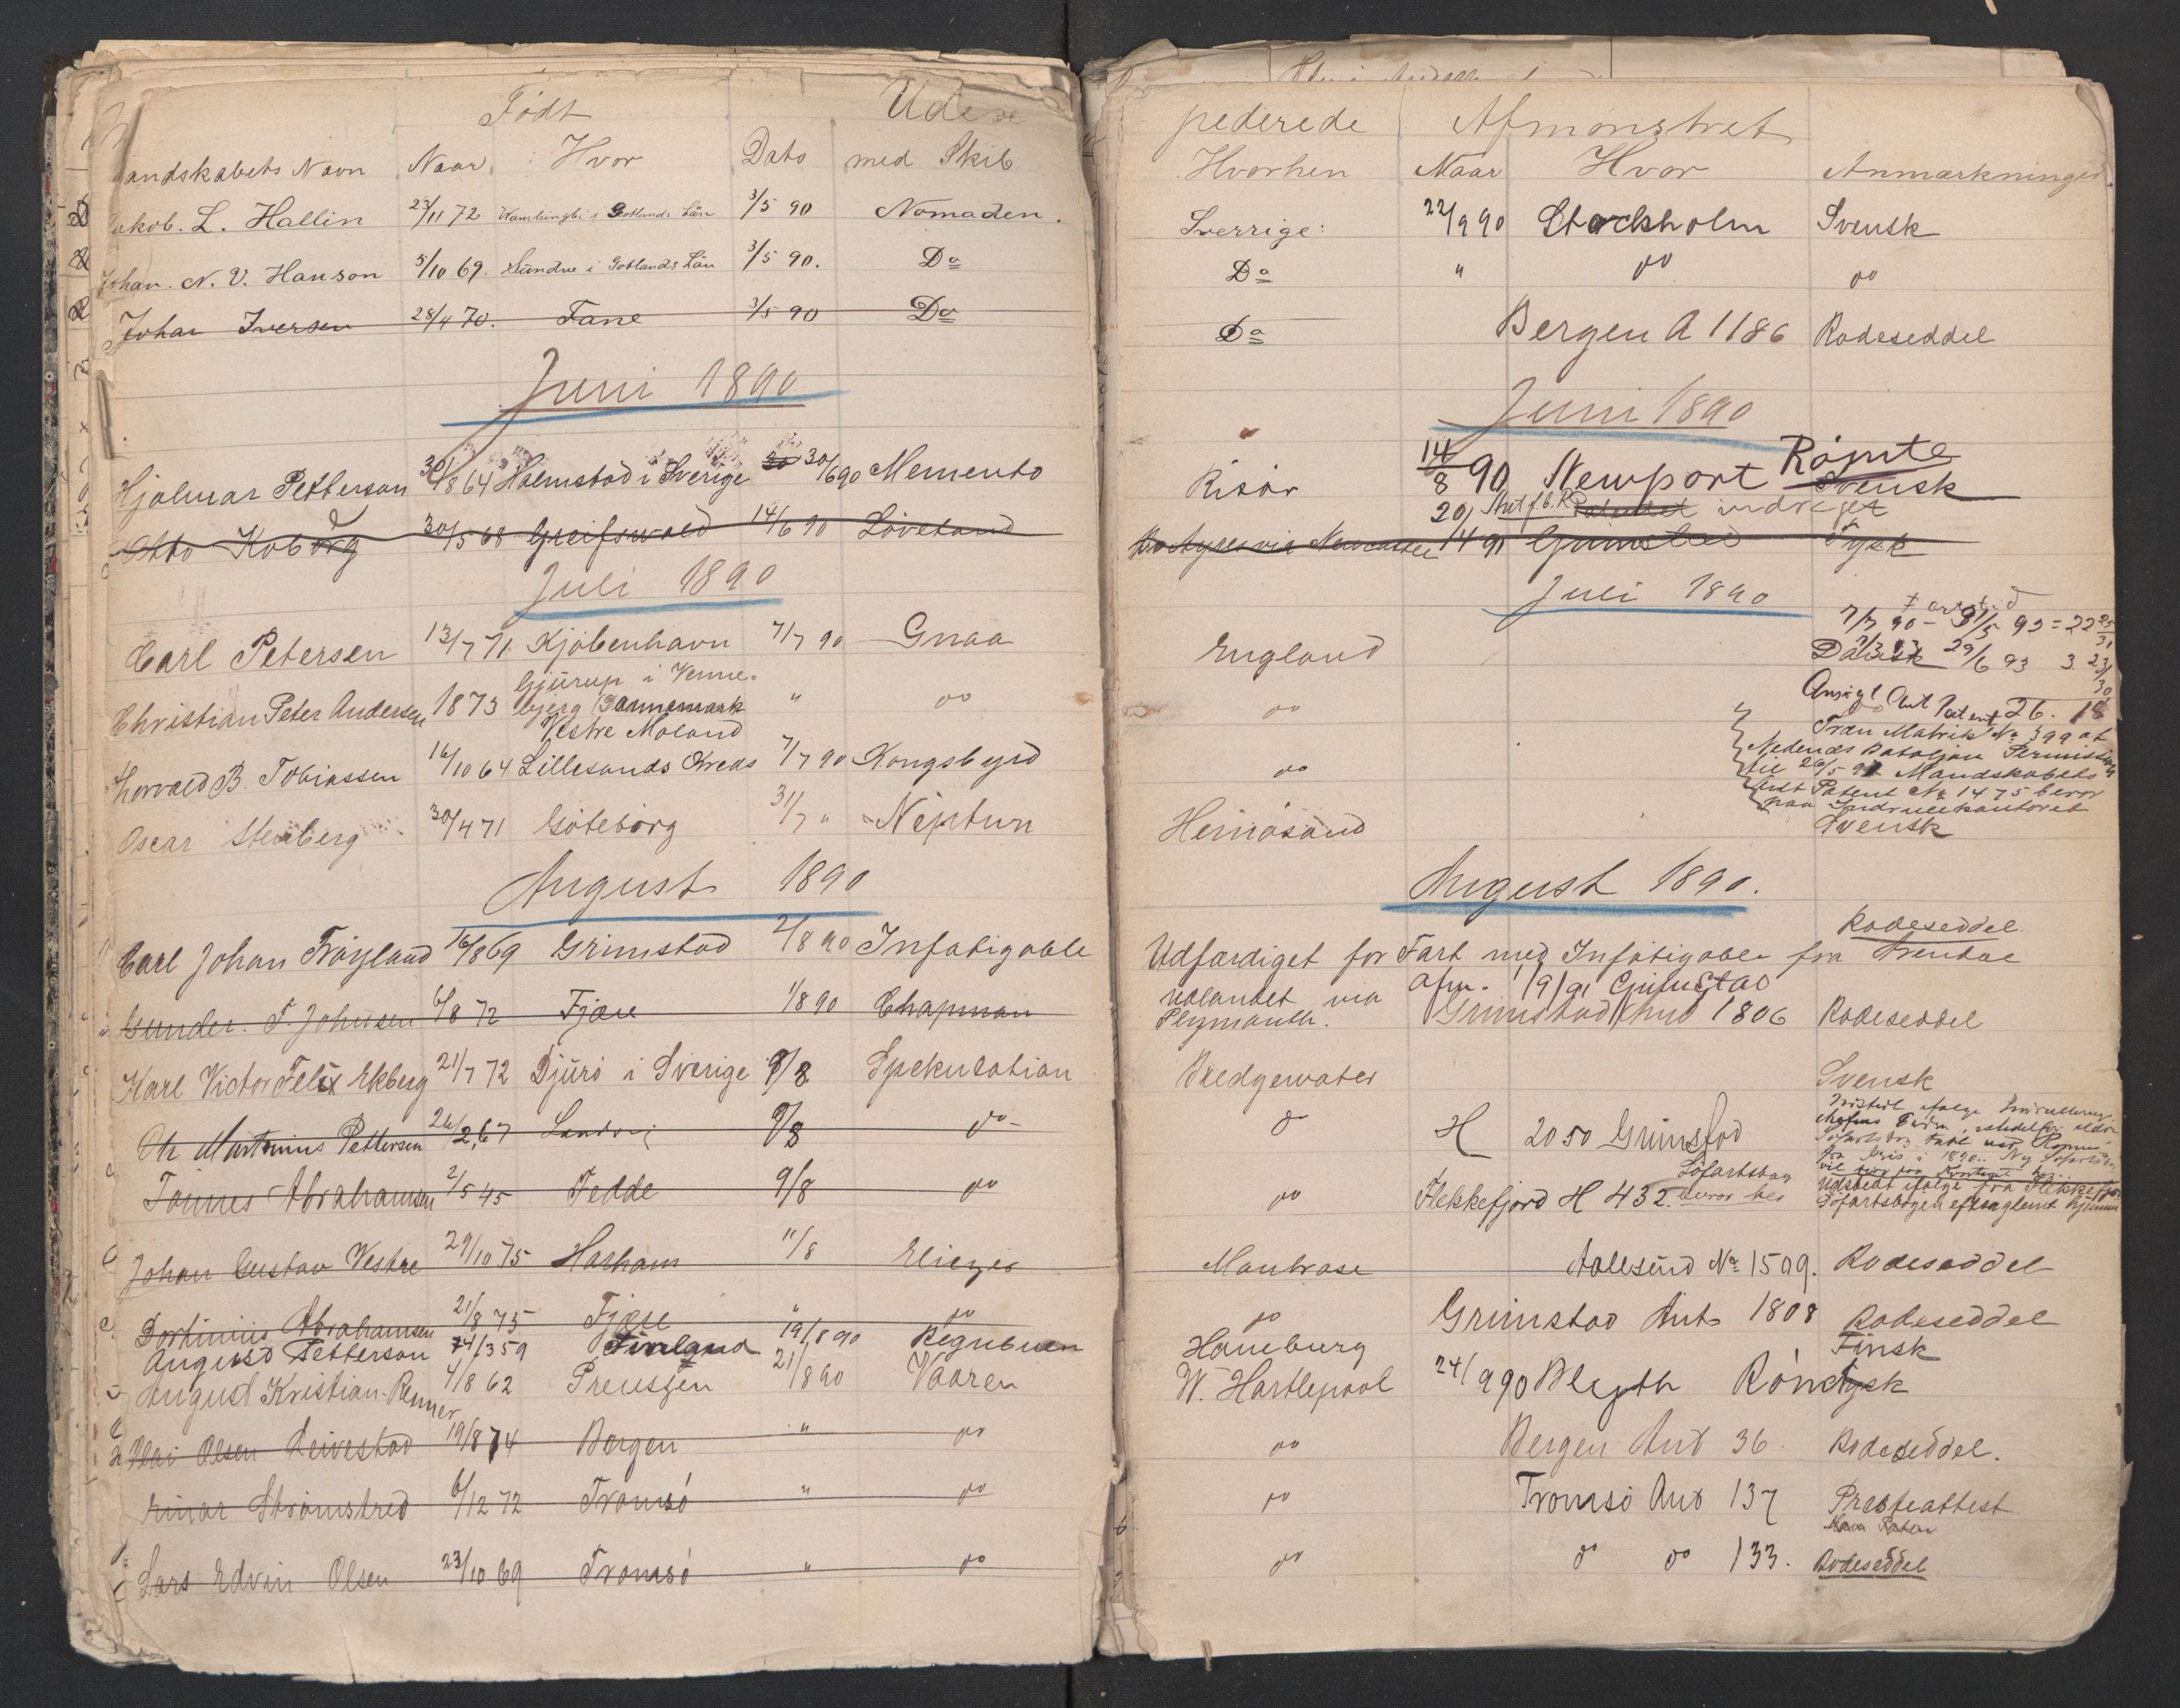 Født Udex
Mandskabets Navn Naar Hvor Dato med Skib
Jakob. L. Hallin 23/11 72 i Gotlands Län 3/5 90 Nomaden.
Johan. N. V. Hanson 5/10 69. Sundre i Gotlands Län 3/5 90. Do
Johan Iversen 28/4 70. Fane 3/5 90 Do
Juni 1890
Hjalmar Petterson 30/8 64 Halmstad i Sverige 30 30/6 90 Memento
Otto Koborg 30/5 68 Greifswald 14/6 90 Løveland
Juli 1890
Carl Petersen 13/7 71. Kjøbenhavn 7/7 90 Gnaa
Gjurup i Venne-
Christian Peter Andersen 1873 bjerg Dannemark " do
Vestre Moland
Thorvald B. Tobiassen 16/10 64 Lillesands Kreds 7/7 90 Kongsbyrd
Oscar Stenberg 30/4 71 Göteborg 31/7 " Neptun
August 1890
Carl Johan Frøyland 16/8 69 Grimstad 2/8 90 Infatigable
Gunder. T. Johnsen 6/8 72 Fjære 1/8 90 Chapman
Karl Victor Felix Ekberg 21/7 72 Djurö i Sverige 9/8 Spekulation
Martinius Pettersen 26/2 67 Landvig 9/8 do
Tønnes Abrahamsen 2/5 45 Fedde 9/8 do
Johan Gustav Vestre 29/10 75 Harham 11/8 Eliezer
Dorthinius Abrahamsen 21/8 75 Fjære " do
August Petterson 14/3 59 Finland 19/8 90 Regnbuen
August Kristian Renner 4/8 62 Preussen 21/8 90 Vaaren
Olai Olsen Leivestad 19/8 74 Bergen " do
Einar Strømstred 6/12 72 Tromsø " do
Lars Edvin Olsen 23/10 69 Tromsø " do
pederede Afmønstret
Hvorhen Naar Hvor Anmærkninger
Sverrige: 22/9 90 Stockholm Svensk
Do " do do
Do Bergen A 1186 Rodeseddel
Juni 1890
Risør 14/8 90 Newport Rømte Svensk
20/ inddraget
B. Ayres via Newcastle 14 91 Grimstad Tysk
Juli 1890
7/7 90 - 31/5 92 = 22 25/31
England Dansk 29/6 93 3 23/30
do Ansøgt Aut Patent 26. 18
Fræn Matrik No 399 at
Nedenæs Bataljon Permission
do til 26/5 91. Mandskabets
Aut Patent No 1475 beror
paa Indrullekontoret
Hernösand Svensk
August 1890.
Rodeseddel
Udfærdiget for Fart med Infatigable fra Arendal
udlandet via Afm. 19/91 Grimstad
Plymouth. Grimstad Aut 1806 Rodeseddel
Bredgewater Svensk
do H 2050 Grimstad
do Flekkefjord H 432. Søfartsbog beror her
Udstedt ifølge fra Flekkefjord
Søfartsbogen efterglemt hjemme
Montrose Aalesund No 1509. Rodeseddel
do Grimstad Aut 1808 Rodeseddel
Hamburg Finsk
W. Hartlepool 24/9 90 Blyth Rømt Tysk
do Bergen Aut 36. Rodeseddel.
do Tromsø Aut 137 Presteattest
do do do 133. Rodeseddel